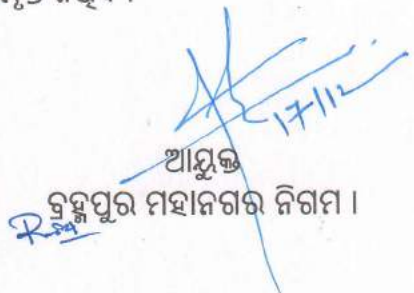 17/12
ଆୟୁକ୍ତ
ବ୍ରହ୍ମପୁର ମହାନଗର ନିଗମ ।